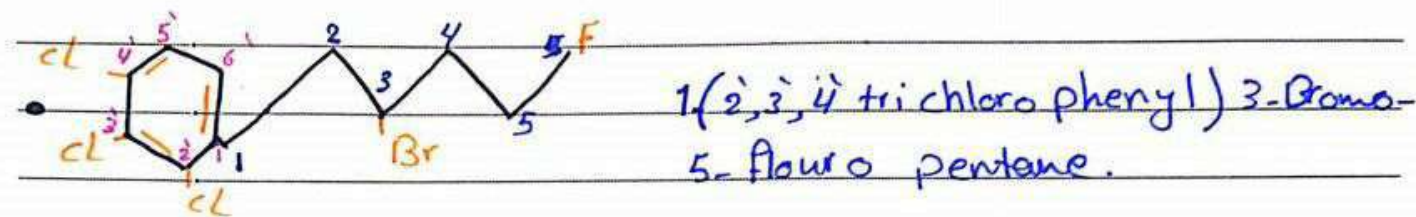 5'
4'
6'
cl
2
4
F
3
3'
cl
2'
1'
1
Br
5
cl
1(2',3',4' trichloro phenyl) 3-Bromo-
5-flouro pentane.